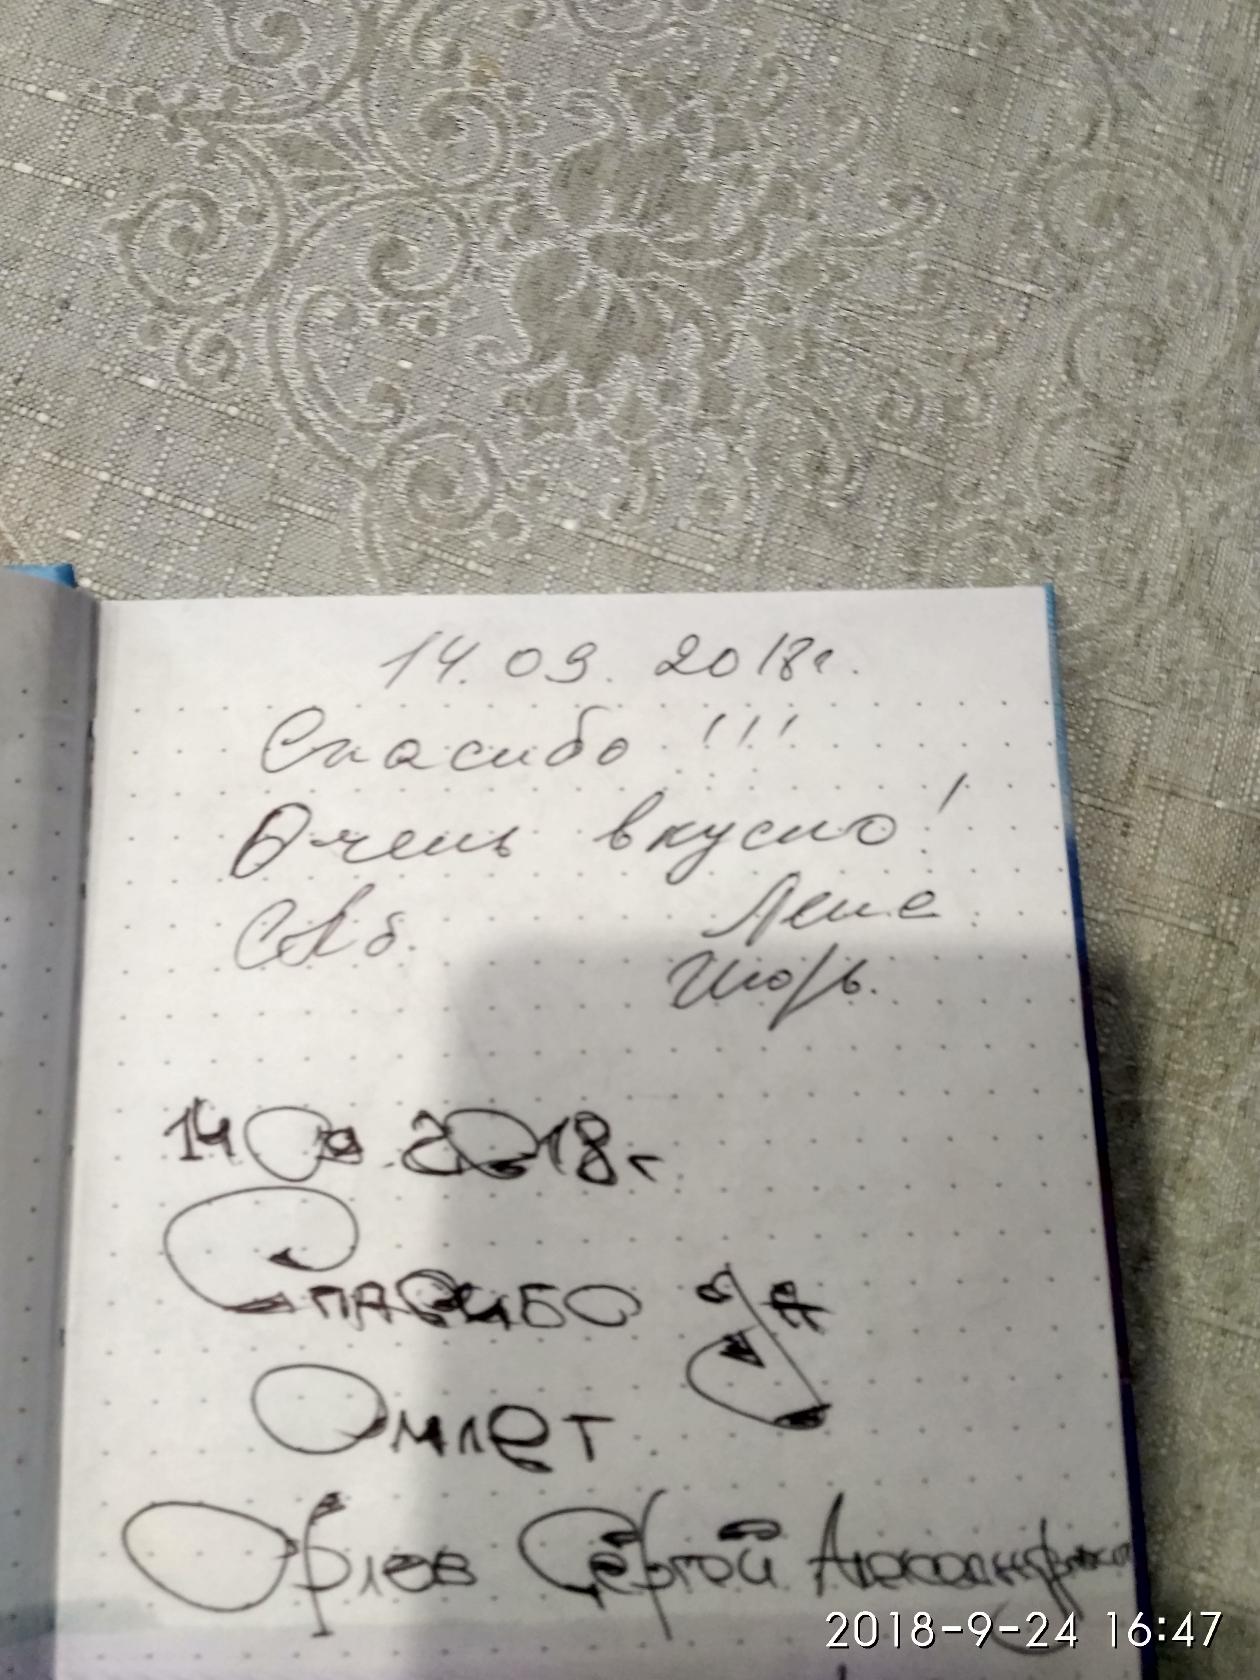 14.09.2018г.
Спасибо!!!
Очень вкусно!
СПб. Лене
Игорь.
14 09 2018г
Спасибо за
Омлет
Орлов Сергей Александрович
2018-9-24 16:47